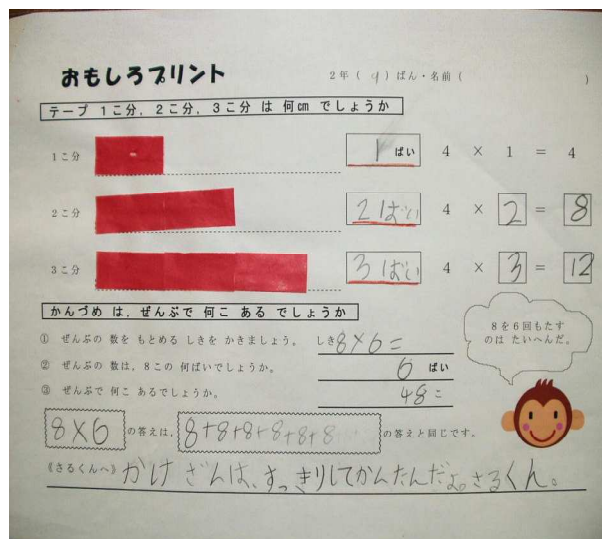 おもしろプリント 2年(9)ばん・名前( )
テープ 1こ分, 2こ分, 3こ分 は 何cm でしょうか
1こ分 1 ばい 4 × 1 = 4
2こ分 2ばい 4 × 2 = 8
3こ分 3ばい 4 × 3 = 12
かんづめ は, ぜんぶで 何こ ある でしょうか
8を6回もたす
のは たいへんだ。
① ぜんぶの 数を もとめる しきを かきましょう。 しき8×6=
② ぜんぶの 数は, 8この 何ばいでしょうか。 6 ばい
③ ぜんぶで 何こ あるでしょうか。 48こ
8×6 の答えは, 8+8+8+8+8+8 の答えと同じです。
《さるくんへ》かけざんは、すっきりしてかんたんだよ。さるくん。